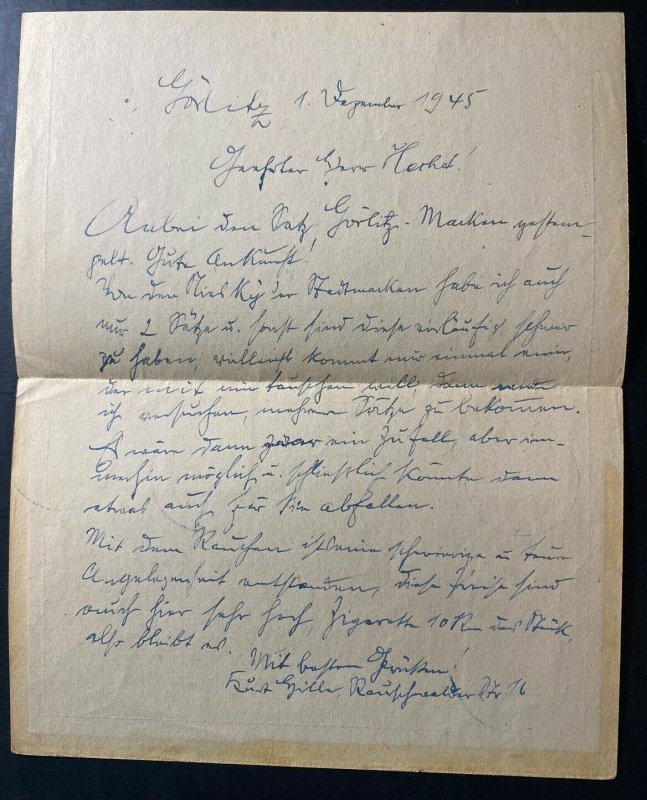 Görlitz 1. Dezember 1945
Geehrter Herr Hechd!
Anbei den Satz Görlitz-Marken gestem-
pelt. Gute Ankunft!
Von den Niesky'er Stadtmarken habe ich auch
nur 2 Sätze u. sonst sind diese vorläufig schwer
zu haben, vielleicht kommt mir einmal einer,
der mit mir tauschen will, dann werde
ich versuchen, mehrere Sätze zu bekommen.
Es wäre dann zwar ein Zufall, aber im-
merhin möglich u. schliesslich könnte dann
etwas auch für Sie abfallen.
Mit dem Rauchen ist eine schwierige u teure
Angelegenheit entstanden, diese Preise sind
auch hier sehr hoch, Zigarette 10 Rm das Stück,
also bleibt es.
Mit bestem Grüßen!
Kurt Hille, Rauschwalder Str 16